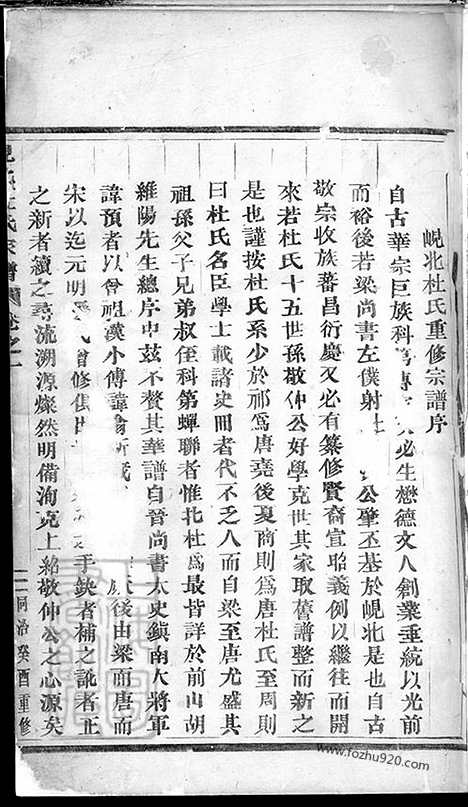 峴北杜氏重修宗譜序
自古華宗巨族科 傳 必生懋德文人創業垂統以光前
而裕後若梁尚書左僕射杜 公肇丕基於峴北是也自古
敬宗收族蕃昌衍慶又必有纂修賢裔宣昭義例以繼往而開
來若杜氏十五世孫敬仲公好學克世其家取舊譜整而新之
是也謹按杜氏系少於祁爲唐堯後夏商則爲唐杜氏至周則
曰杜氏名臣學士載諸史冊者代不乏人而自梁至唐尤盛其
祖孫父子兄弟叔侄科第蟬聯者惟北杜爲最皆詳於前山胡
維陽先生總序中玆不贅其華譜自晉尚書太史鎮南大將軍
諱預者以曾祖漢小傅諱 後由梁而唐而
宋以迄元明 修 手缺者補之訛者正
之新者續之尋流溯源燦然明備洵克上紹敬仲公之心源矣
杜氏宗譜 卷之一
同治癸酉重修
www.fozhu920.com